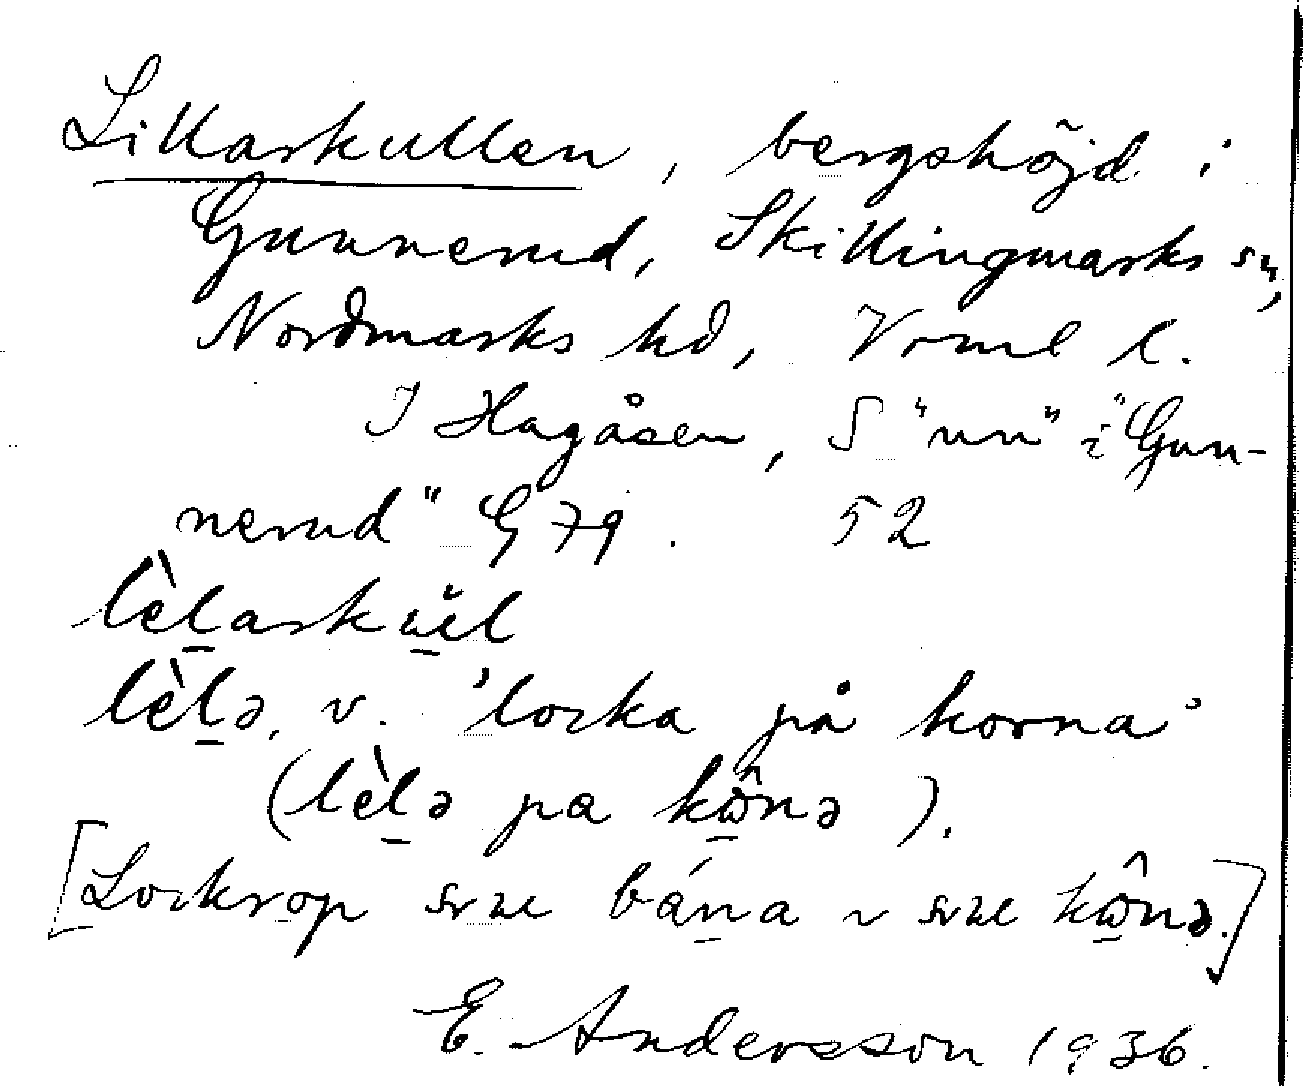 Lillarkullen, bergshöjd i
Gunnerud, Skillingmarks sn,
Nordmarks hd, Vrml l.
I Hagåsen, S "un" i "Gun-
nerud" G 79. 52
lèḻarkul
lèḻə, v. 'locka på korna'
(lèḻə pa kω̂nə).
[Lockrop báṉa kω̂nə.]
E. Andersson 1936.